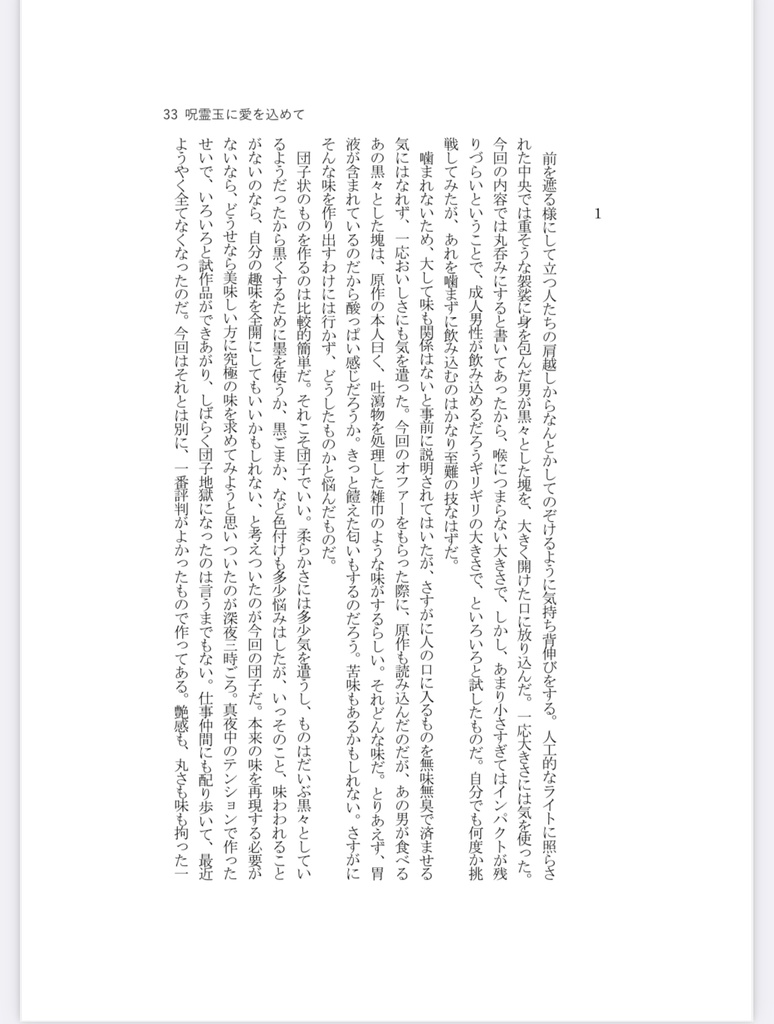 33 呪霊玉に愛を込めて
1
　前を遮る様にして立つ人たちの肩越しからなんとかしてのぞけるように気持ち背伸びをする。人工的なライトに照らさ
れた中央では重そうな袈裟に身を包んだ男が黒々とした塊を、大きく開けた口に放り込んだ。一応大きさには気を使った。
今回の内容では丸呑みにすると書いてあったから、喉につまらない大きさで、しかし、あまり小さすぎてはインパクトが残
りづらいということで、成人男性が飲み込めるだろうギリギリの大きさで、といろいろと試したものだ。自分でも何度か挑
戦してみたが、あれを噛まずに飲み込むのはかなり至難の技なはずだ。
　噛まれないため、大して味も関係はないと事前に説明されてはいたが、さすがに人の口に入るものを無味無臭で済ませる
気にはなれず、一応おいしさにも気を遣った。今回のオファーをもらった際に、原作も読み込んだのだが、あの男が食べる
あの黒々とした塊は、原作の本人曰く、吐瀉物を処理した雑巾のような味がするらしい。それどんな味だ。とりあえず、胃
液が含まれているのだから酸っぱい感じだろうか。きっと饐えた匂いもするのだろう。苦味もあるかもしれない。さすがに
そんな味を作り出すわけには行かず、どうしたものかと悩んだものだ。
　団子状のものを作るのは比較的簡単だ。それこそ団子でいい。柔らかさには多少気を遣うし、ものはだいぶ黒々としてい
るようだったから黒くするために墨を使うか、黒ごまか、など色付けも多少悩みはしたが、いっそのこと、味わわれること
がないのなら、自分の趣味を全開にしてもいいかもしれない、と考えついたのが今回の団子だ。本来の味を再現する必要が
ないなら、どうせなら美味しい方に究極の味を求めてみようと思いついたのが深夜三時ごろ。真夜中のテンションで作った
せいで、いろいろと試作品ができあがり、しばらく団子地獄になったのは言うまでもない。仕事仲間にも配り歩いて、最近
ようやく全てなくなったのだ。今回はそれとは別に、一番評判がよかったもので作ってある。艶感も、丸さも味も拘った一